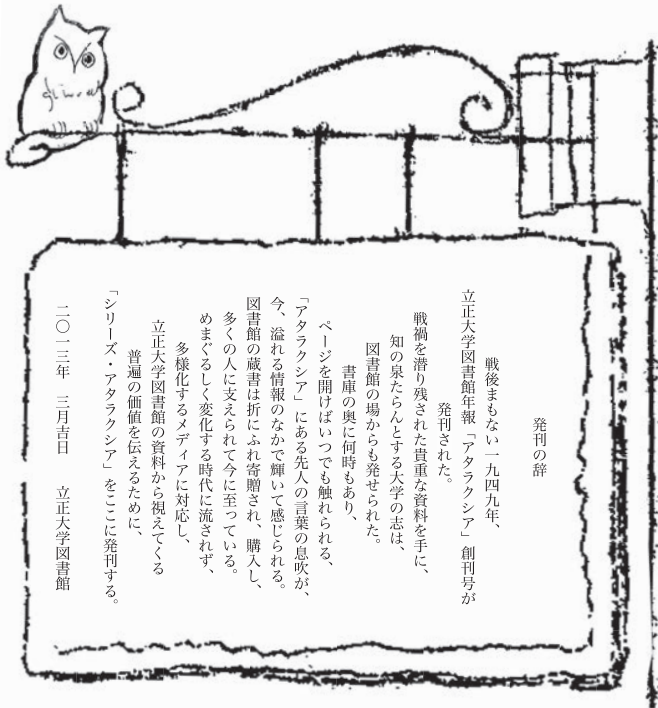 発刊の辞
戦後まもない一九四九年、
立正大学図書館年報「アタラクシア」創刊号が
発刊された。
戦禍を潜り残された貴重な資料を手に、
知の泉たらんとする大学の志は、
図書館の場からも発せられた。
書庫の奥に何時もあり、
ページを開けばいつでも触れられる、
「アタラクシア」にある先人の言葉の息吹が、
今、溢れる情報のなかで輝いて感じられる。
図書館の蔵書は折にふれ寄贈され、購入し、
多くの人に支えられて今に至っている。
めまぐるしく変化する時代に流されず、
多様化するメディアに対応し、
立正大学図書館の資料から視えてくる
普遍の価値を伝えるために、
「シリーズ・アタラクシア」をここに発刊する。
二〇一三年　三月吉日　　立正大学図書館